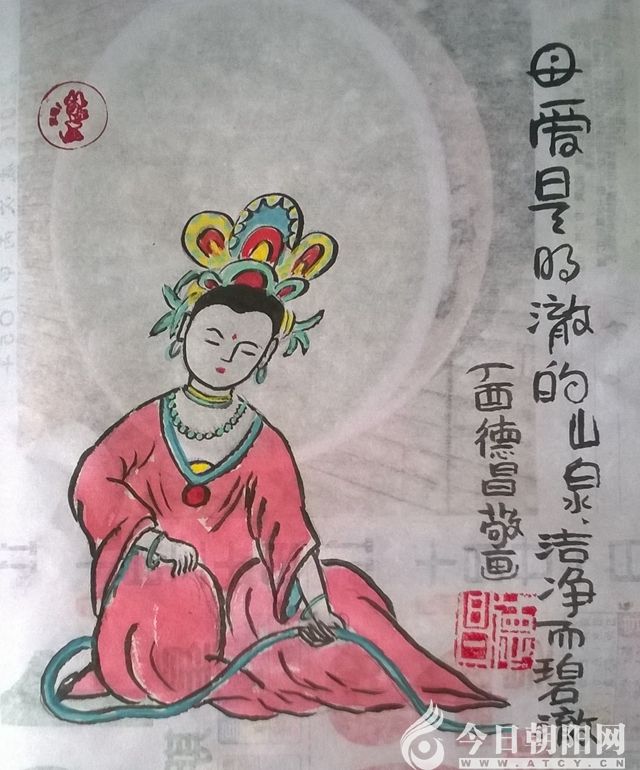 母爱是明澈的山泉、洁净而碧澈
丁酉德昌敬画
今日朝阳网
WWW.ATCY.CN